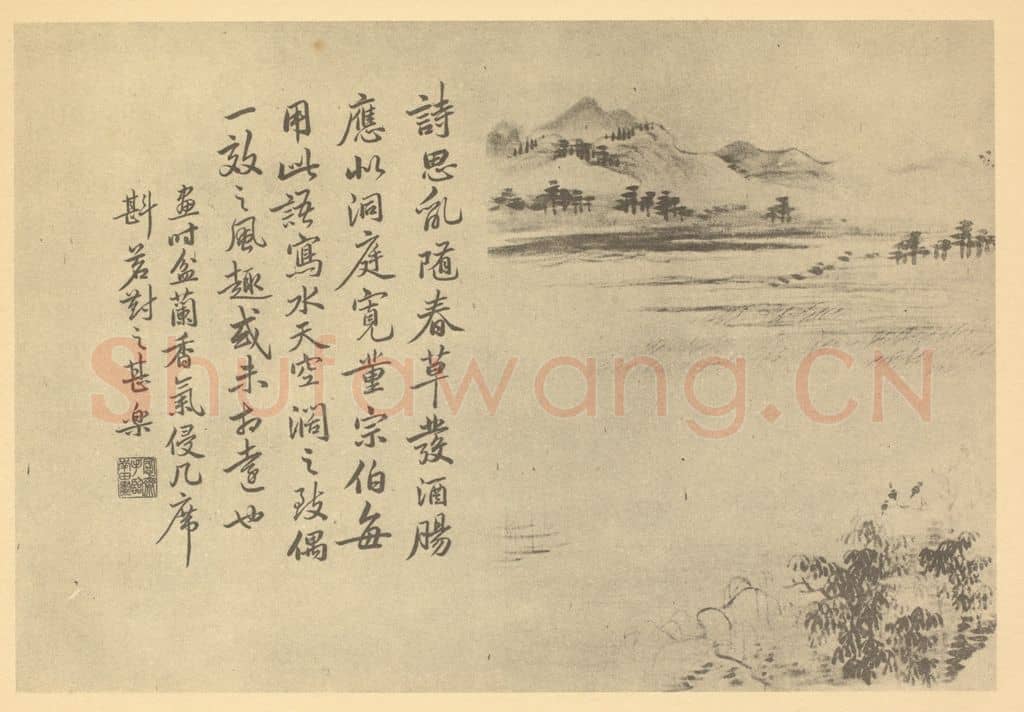 詩思亂隨春草發酒腸
應似洞庭寬董宗伯每
用此語寫水天空濶之致偶
一效之風趣或未相遠也
畫時盆蘭香氣侵几席
斟茗對之甚樂
Shufawang.CN